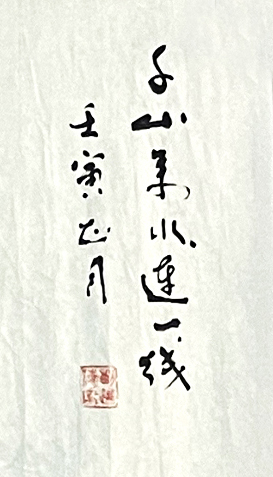 千山万水连一线
壬寅正月